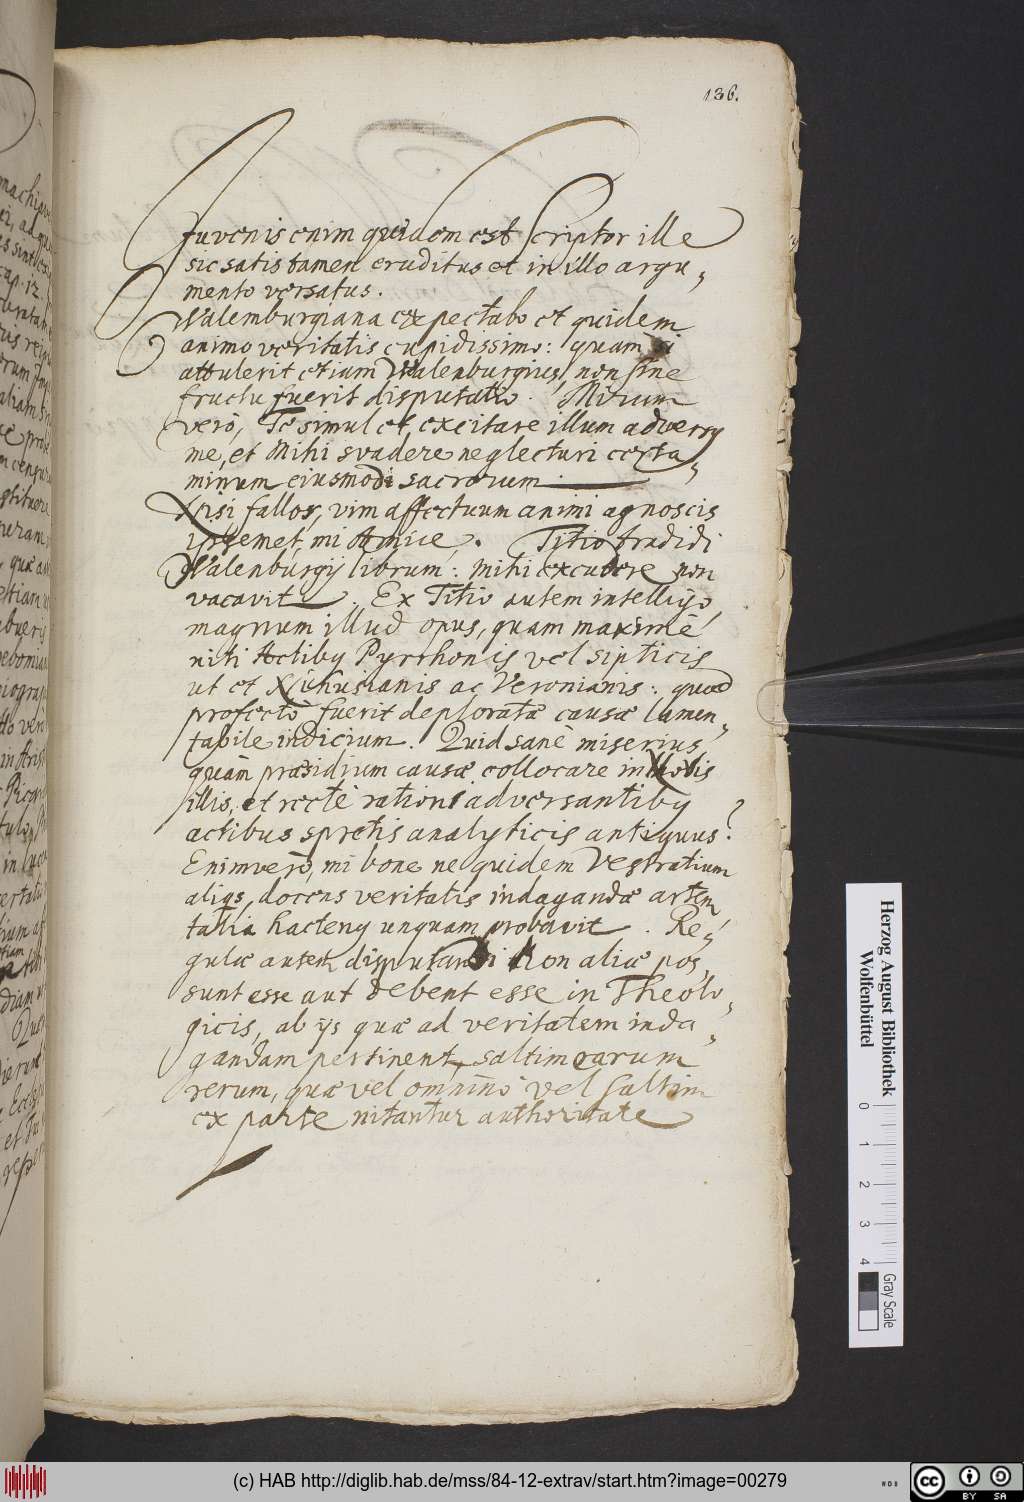 136.
Juvenis enim quidem est Scriptor ille
sic satis tamen eruditus et in illo argu„
mento versatus.
Walemburgiana expectabo et quidem
animo veritatis cupidissimo: quam si
attulerit etiam Walenburgius, non sine
fructu fuerit disputatio. Mirum
verò, Te simul et excitare illum adversus
me, et Mihi svadere neglecturi certa„
minum eiusmodi sacrorum
Nisi fallor, vim affectuum animi agnoscis
ipsemet, mi Amice. Titio tradidi
Walenburgij librum: mihi excutere non
vacavit. Ex Titio autem intelligo,
magnum illud opus, quam maximè
niti Actibus Pyrrhonis vel sipticis
ut et Nihusianis ac Veronianis: quod
profectò fuerit deploratæ causæ lamen„
tabile indicium. Quid sanè miserius,
quàm præsidium causæ collocare in
illis, et rectè rationi adversantibus
actibus spretis analyticis antiquis?
Enimverò, mi bone ne quidem Vestratium
aliqs, docens veritatis indagandæ artem
talia hactenus unquam probavit. Re„
gulæ autem disputandi non aliæ pos„
sunt esse aut debent esse in Theolo„
gicis, ab ijs quæ ad veritatem inda„
gandam pertinent, saltim earum
rerum, quæ vel omninò vel saltim
ex parte nitantur authoritate
Herzog August Bibliothek
Wolfenbüttel
0 1 2 3 4
Gray Scale
(c) HAB http://diglib.hab.de/mss/84-12-extrav/start.htm?image=00279
cc BY SA